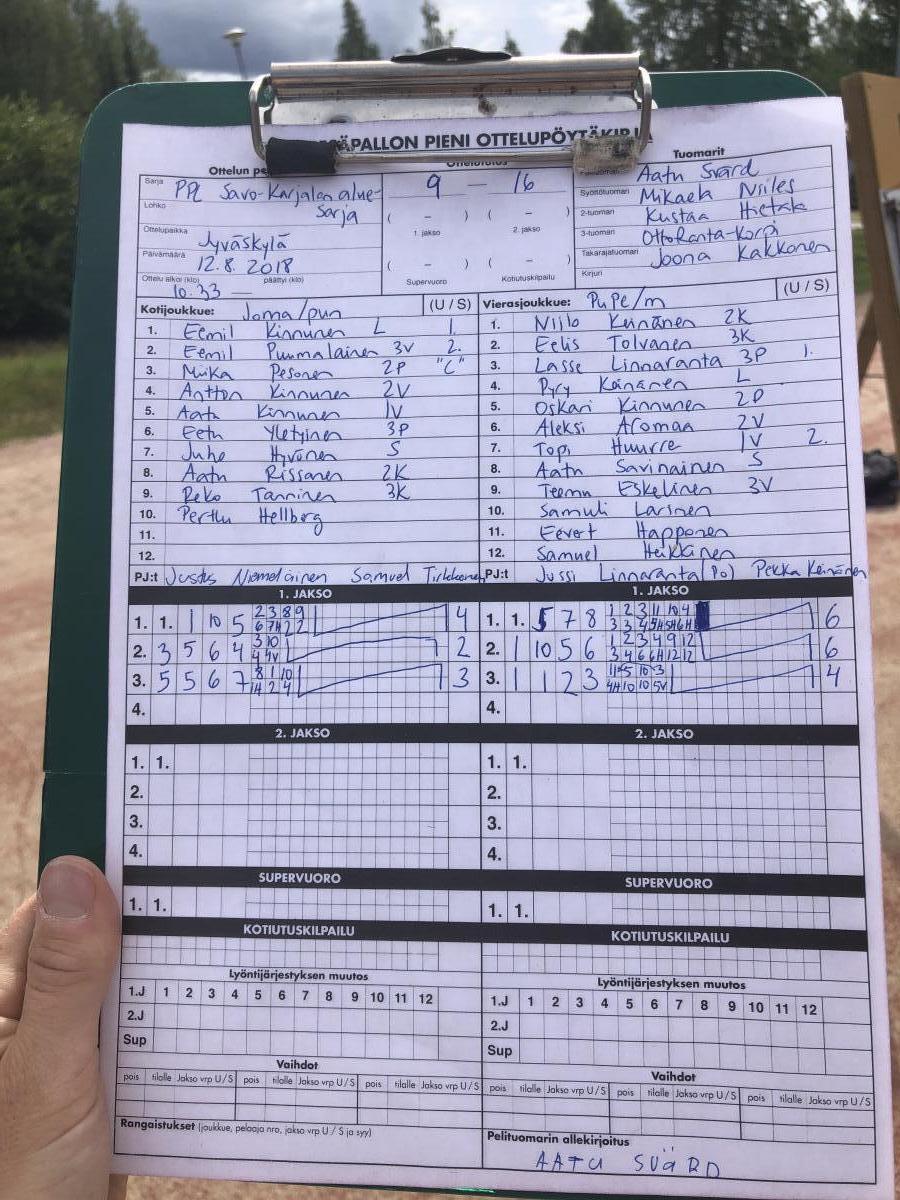 PESÄPALLON PIENI OTTELUPÖYTÄKIRJA
Sarja PPL Savo-Karjalan alue-
Sarja
Lohko
Ottelupaikka Jyväskylä
Päivämäärä 12.8. 2018
Ottelu alkoi (klo) 10.33 — päättyi (klo)
Ottelutulos
9 — 16
( – ) ( – )
1. jakso 2. jakso
( – ) ( – )
Supervuoro Kotiutuskilpailu
Tuomarit
Aatu Svärd
Syöttötuomari Mikaela Niiles
2-tuomari Kustaa Hietala
3-tuomari Otto Ranta-Korpi
Takarajatuomari Joona Kakkonen
Kirjuri
Kotijoukkue: Joma/pun (U / S)
1. Eemil Kinnunen L 1.
2. Eemil Puumalainen 3V 2.
3. Miika Pesonen 2P "C"
4. Antton Kinnunen 2V
5. Aatu Kinnunen 1V
6. Eetu Yletyinen 3P
7. Juho Hyvönen S
8. Aatu Rissanen 2K
9. Reko Tanninen 3K
10. Perttu Hellberg
11.
12.
PJ:t Justus Niemeläinen Samuel Tirkkonen
Vierasjoukkue: PuPe/m (U / S)
1. Niilo Keinänen 2K
2. Eelis Tolvanen 3K
3. Lasse Linnaranta 3P 1.
4. Pyry Keinänen L
5. Oskari Kinnunen 2P
6. Aleksi Aromaa 2V
7. Topi Huurre 1V 2.
8. Aatu Savinainen S
9. Teemu Eskelinen 3V
10. Samuli Larinen
11. Eevert Happonen
12. Samuel Heikkinen
PJ:t Jussi Linnaranta (Po) Pekka Keinänen
1. JAKSO
1. 1. 1 10 5 2 3 8 9 4
6 7H 2 2
2. 3 5 6 4 3 10 2
4 4V
3. 5 5 6 7 8 1 10 3
1H 2 4
4.
1. JAKSO
1. 1. 5 7 8 1 2 3 11 10 4 6
3 3 4 5H 5H 6H
2. 1 10 5 6 1 2 3 4 9 12 6
3 4 6 6H 12 12
3. 1 1 2 3 11 5 10 3 4
4H 10 10 5V
4.
2. JAKSO
1. 1.
2.
3.
4.
2. JAKSO
1. 1.
2.
3.
4.
SUPERVUORO
1. 1.
SUPERVUORO
1. 1.
KOTIUTUSKILPAILU
KOTIUTUSKILPAILU
Lyöntijärjestyksen muutos
1.J 1 2 3 4 5 6 7 8 9 10 11 12
2.J
Sup
Lyöntijärjestyksen muutos
1.J 1 2 3 4 5 6 7 8 9 10 11 12
2.J
Sup
Vaihdot
pois tilalle Jakso vrp U / S pois tilalle Jakso vrp U / S pois tilalle Jakso vrp U / S
Vaihdot
pois tilalle Jakso vrp U / S pois tilalle Jakso vrp U / S pois tilalle Jakso vrp U / S
Rangaistukset (joukkue, pelaaja nro, jakso vrp U / S ja syy)
Pelituomarin allekirjoitus
AATU SVÄRD